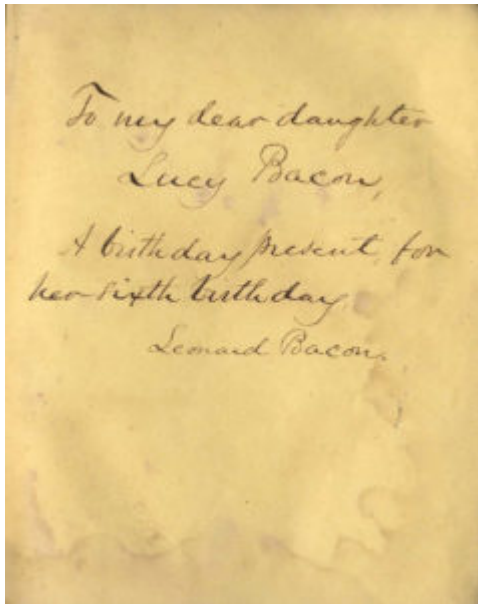 To my dear daughter
Lucy Bacon,
A birthday present, for
her sixth birthday.
Leonard Bacon.